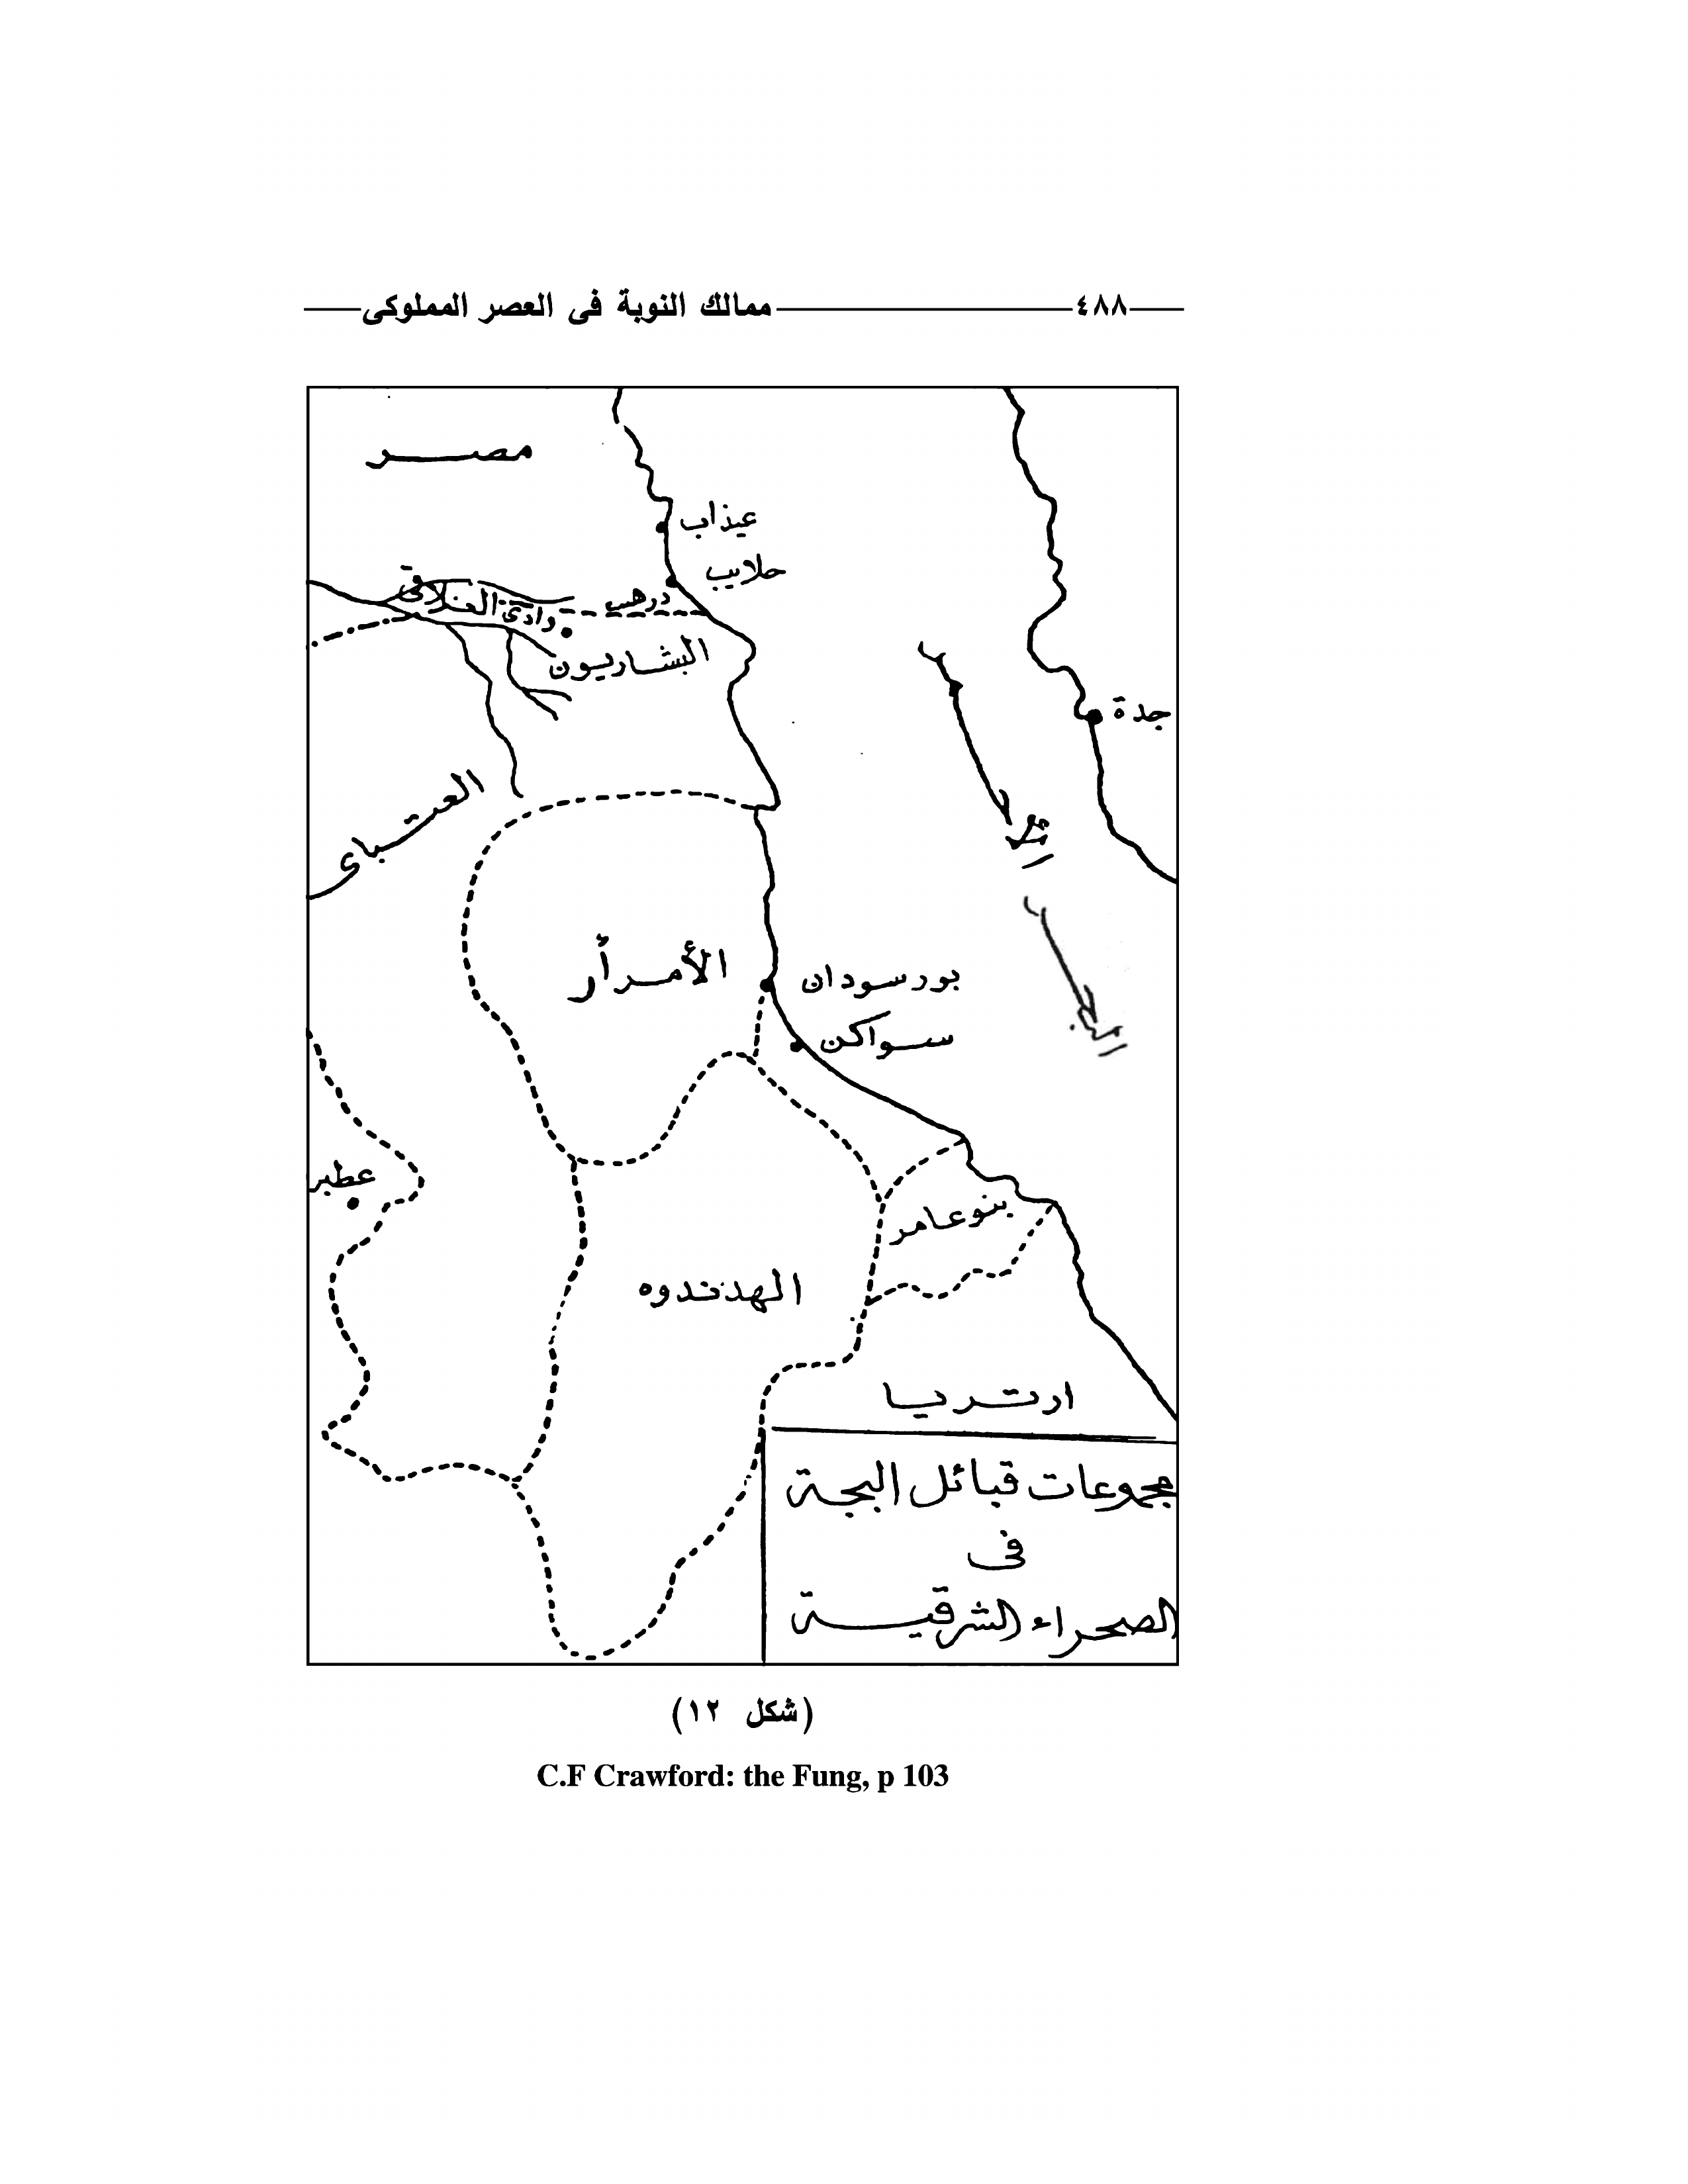 ٤٨٨ ممالك النوبة فى العصر المملوكى
مصر
عيذاب
حلايب
درهيب
وادى العلاقى
البشاريون
جدة
العتباى
البحر
الأحمر
الأمرأر
بورسودان
سواكن
عطبر
بنو عامر
الهدندوه
ارتريا
مجموعات قبائل البجة
فى
الصحراء الشرقية
(شكل ١٢)
C.F Crawford: the Fung, p 103